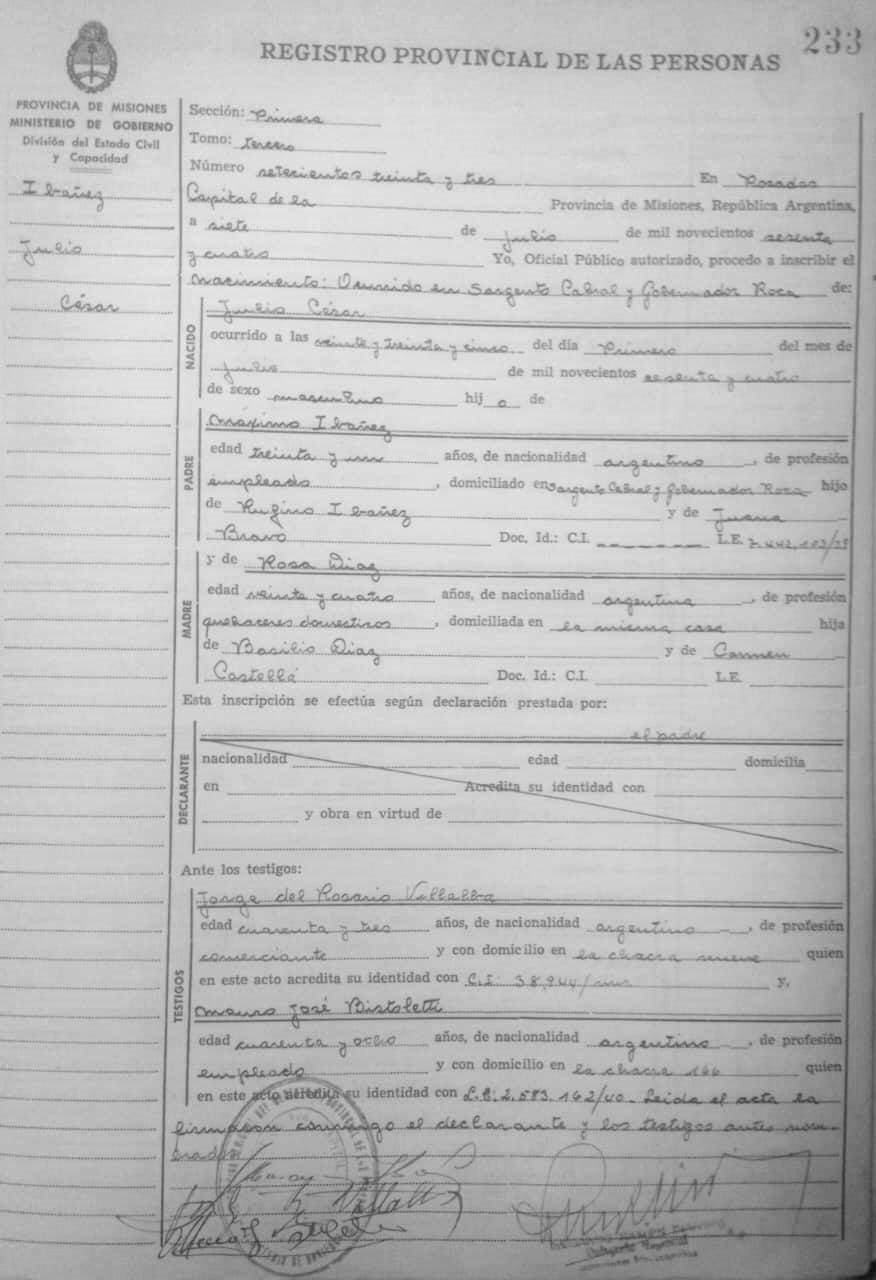 233
REGISTRO PROVINCIAL DE LAS PERSONAS
PROVINCIA DE MISIONES
MINISTERIO DE GOBIERNO
División del Estado Civil
y Capacidad
Ibañez
Julio
César
Sección: Primera
Tomo: tercero
Número setecientos treinta y tres En Posadas
Capital de la Provincia de Misiones, República Argentina,
a siete de julio de mil novecientos sesenta
y cuatro Yo, Oficial Público autorizado, procedo a inscribir el
nacimiento: Ocurrido en Sargento Cabral y Gobernador Roca de:
NACIDO
Julio César
ocurrido a las veinte y treinta y cinco del día Primero del mes de
julio de mil novecientos sesenta y cuatro
de sexo masculino hij o de
PADRE
Máximo Ibañez
edad treinta y un años, de nacionalidad argentino, de profesión
empleado, domiciliado en Sargento Cabral y Gobernador Roca hijo
de Rufino Ibañez y de Juana
Bravo Doc. Id.: C.I. L.E.
MADRE
y de Rosa Diaz
edad veinte y cuatro años, de nacionalidad argentina, de profesión
quehaceres domesticos, domiciliada en la misma casa hija
de Basilio Diaz y de Carmen
Castellé Doc. Id.: C.I. L.E.
Esta inscripción se efectúa según declaración prestada por:
DECLARANTE
el padre
nacionalidad edad domicilia
en Acredita su identidad con
y obra en virtud de
Ante los testigos:
TESTIGOS
Jorge del Rosario Villalba
edad cuarenta y tres años, de nacionalidad argentino, de profesión
comerciante y con domicilio en la chacra nueve quien
en este acto acredita su identidad con C.I: 38.944 y,
Mauro José Bistoletti
edad cuarenta y ocho años, de nacionalidad argentino, de profesión
empleado y con domicilio en la chacra 166 quien
en este acto acredita su identidad con L.E. 2.583.162/40. Leida el acta la
firmaron conmigo el declarante y los testigos antes nom-
brados